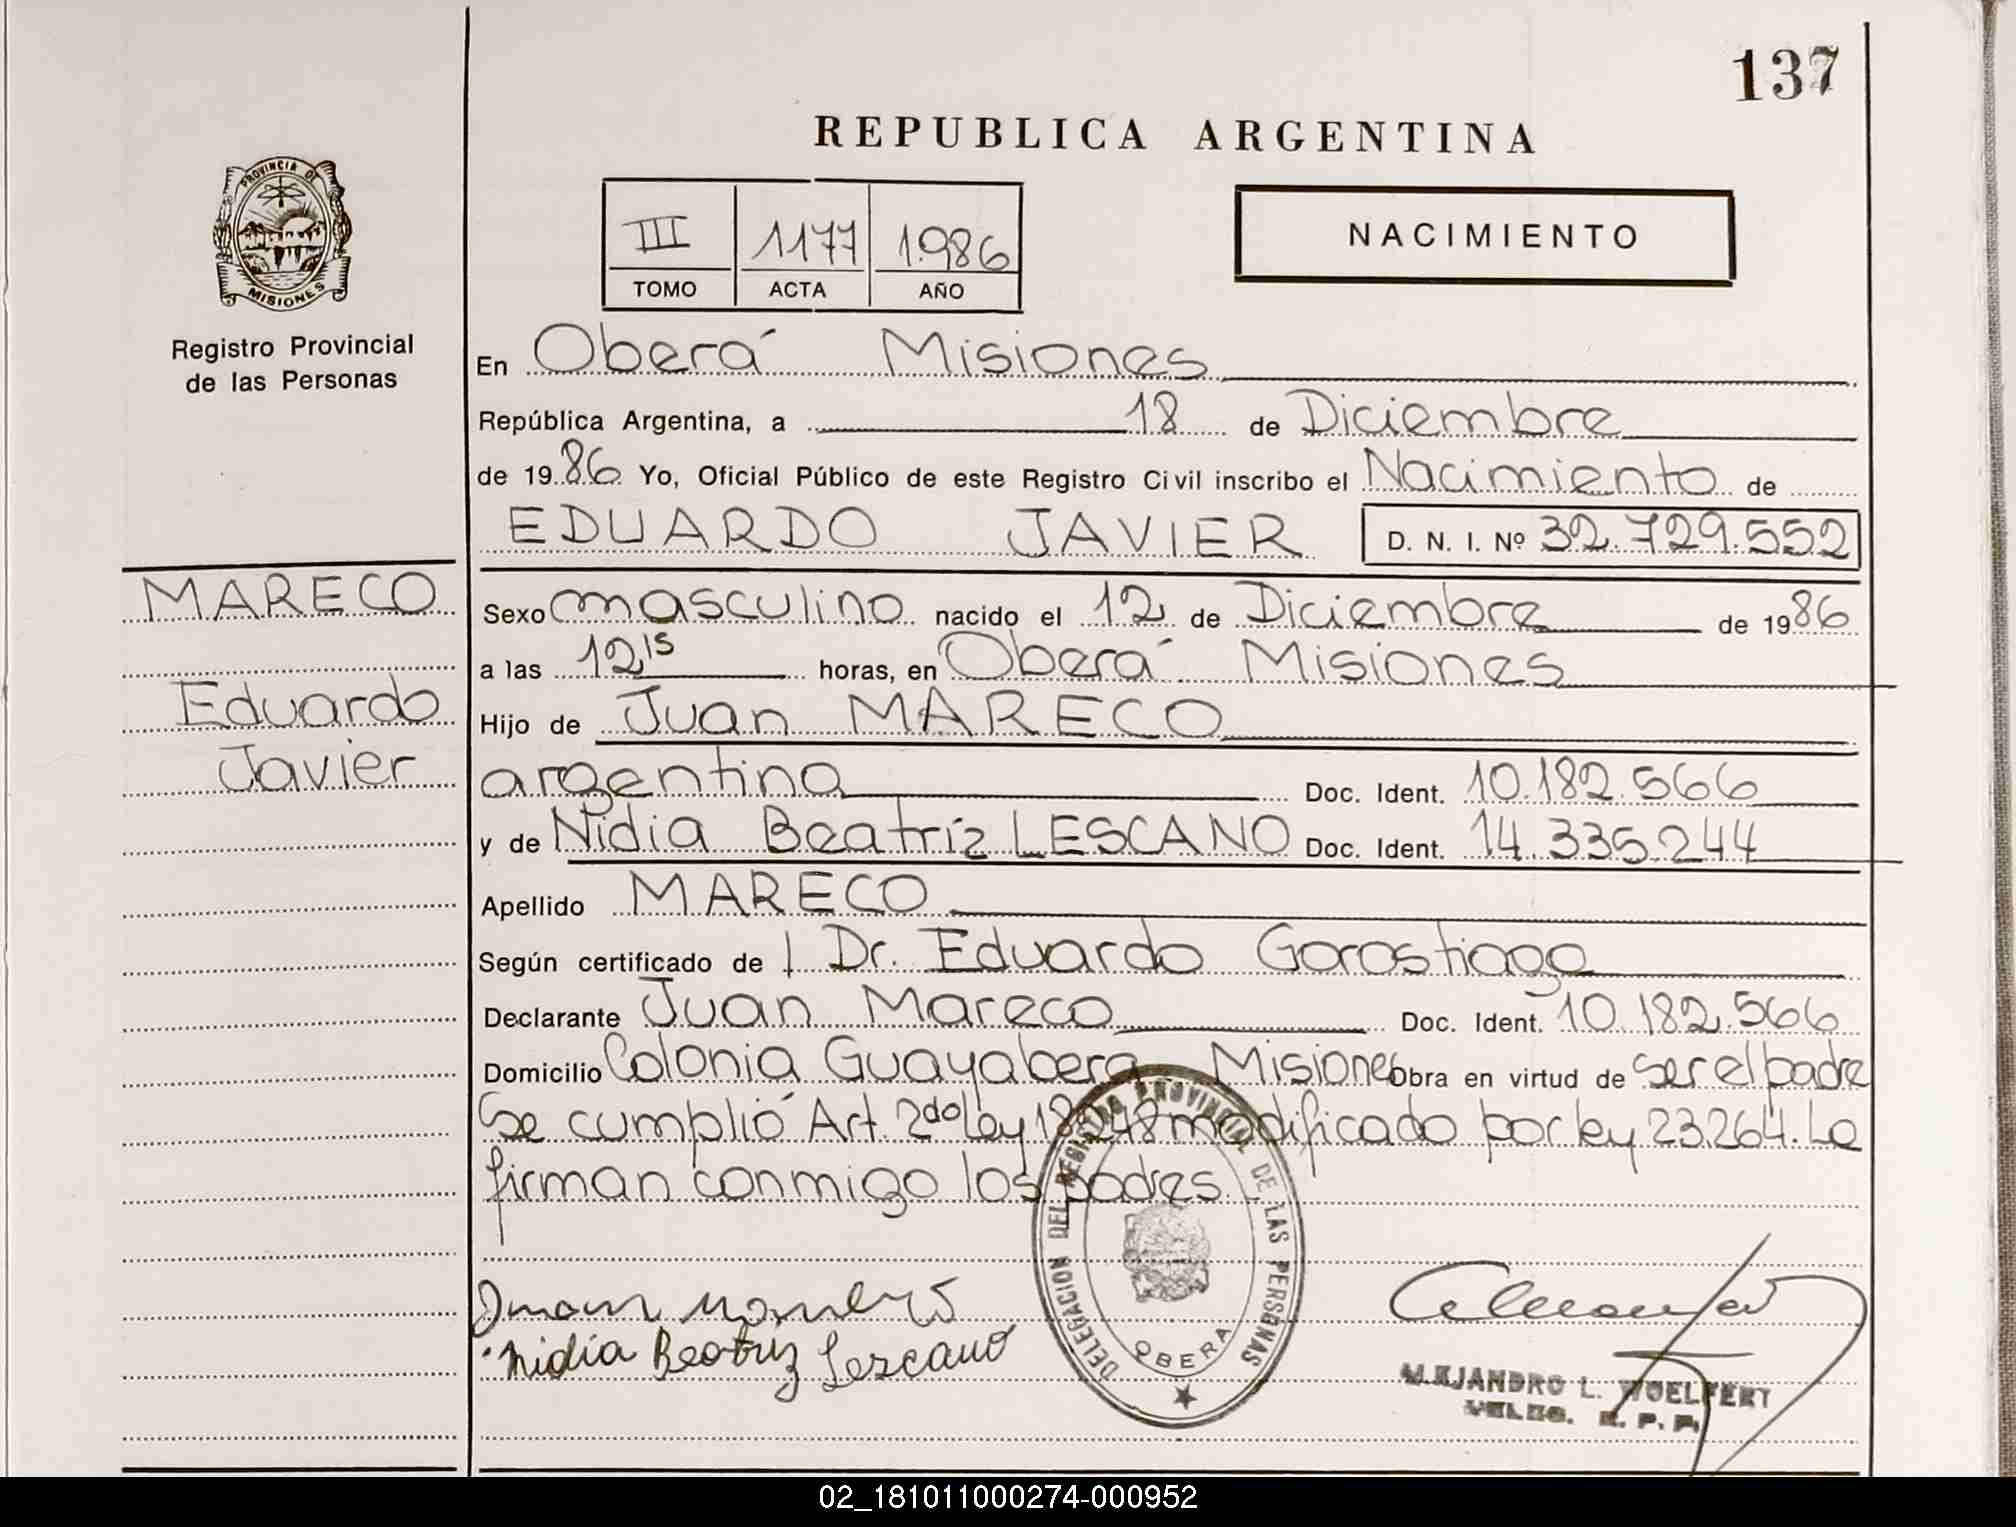 137
REPUBLICA ARGENTINA
PROVINCIA DE
MISIONES
Registro Provincial
de las Personas
III 1177 1.986
TOMO ACTA AÑO
NACIMIENTO
En Oberá Misiones
República Argentina, a 18 de Diciembre
de 19 86 Yo, Oficial Público de este Registro Civil inscribo el Nacimiento de
EDUARDO JAVIER D. N. I. Nº 32.729.552
MARECO
Eduardo
Javier
Sexo masculino nacido el 12 de Diciembre de 19 86
a las 12 15 horas, en Oberá Misiones
Hijo de Juan MARECO
argentina Doc. Ident. 10.182.566
y de Nidia Beatríz LESCANO Doc. Ident. 14.335.244
Apellido MARECO
Según certificado de Dr. Eduardo Gorostiaga
Declarante Juan Mareco Doc. Ident. 10.182.566
Domicilio Colonia Guayabera Misiones Obra en virtud de ser el padre
Se cumplió Art. 2do ley 18248 modificado por ley 23.264. La
firman conmigo los padres.
DELEGACION DEL REGISTRO PROVINCIAL DE LAS PERSONAS
OBERA
Nidia Beatriz Lescano
ALEJANDRO L. WOELFERT
DELEG. R. P. P.
02_181011000274-000952